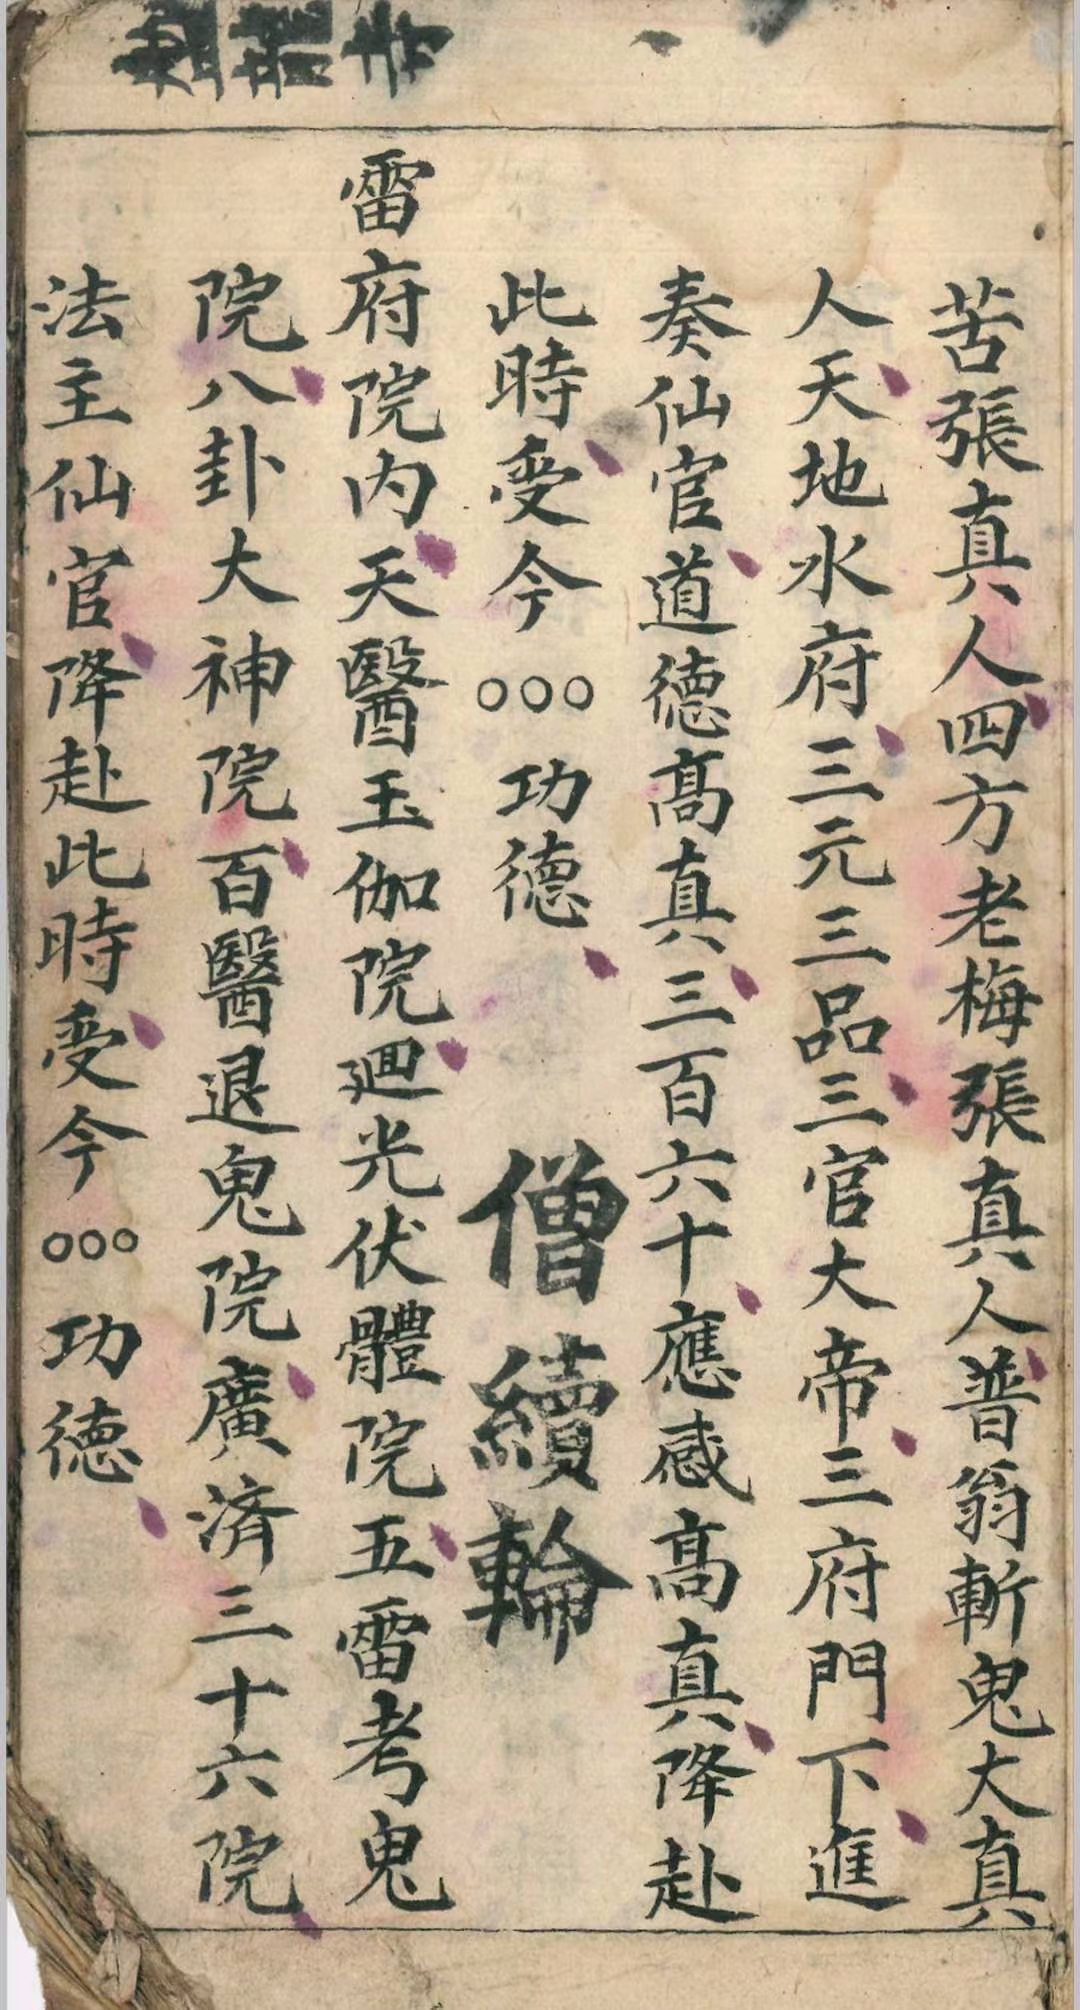 苦張真人四方老梅張真人普翁斬鬼大真
人天地水府三元三品三官大帝三府門下進
奏仙官道德髙真三百六十應感髙真降赴
此時受今○○○功德
僧續輪
雷府院内天醫玉伽院迴光伏體院五雷考鬼
院八卦大神院百醫退鬼院廣済三十六院
法主仙官降赴此時受今○○○功德